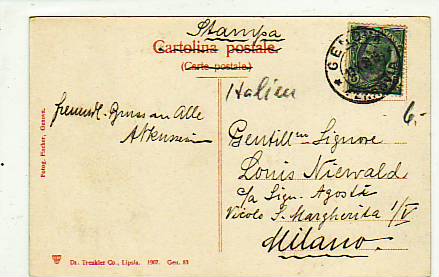 Stampa
Cartolina postale.
(Carte postale.)
GENOVA
FERROVIA
Italien
6.-
freundl. Gruss an Alle
Gentill^mo Signore
Louis Niewald
c/a Sign. Agostà
Vicolo S. Margherita 1/V
Milano.
Fotog. Fischer, Genova.
Dr. Trenkler Co., Lipsia. 1907. Gen. 83